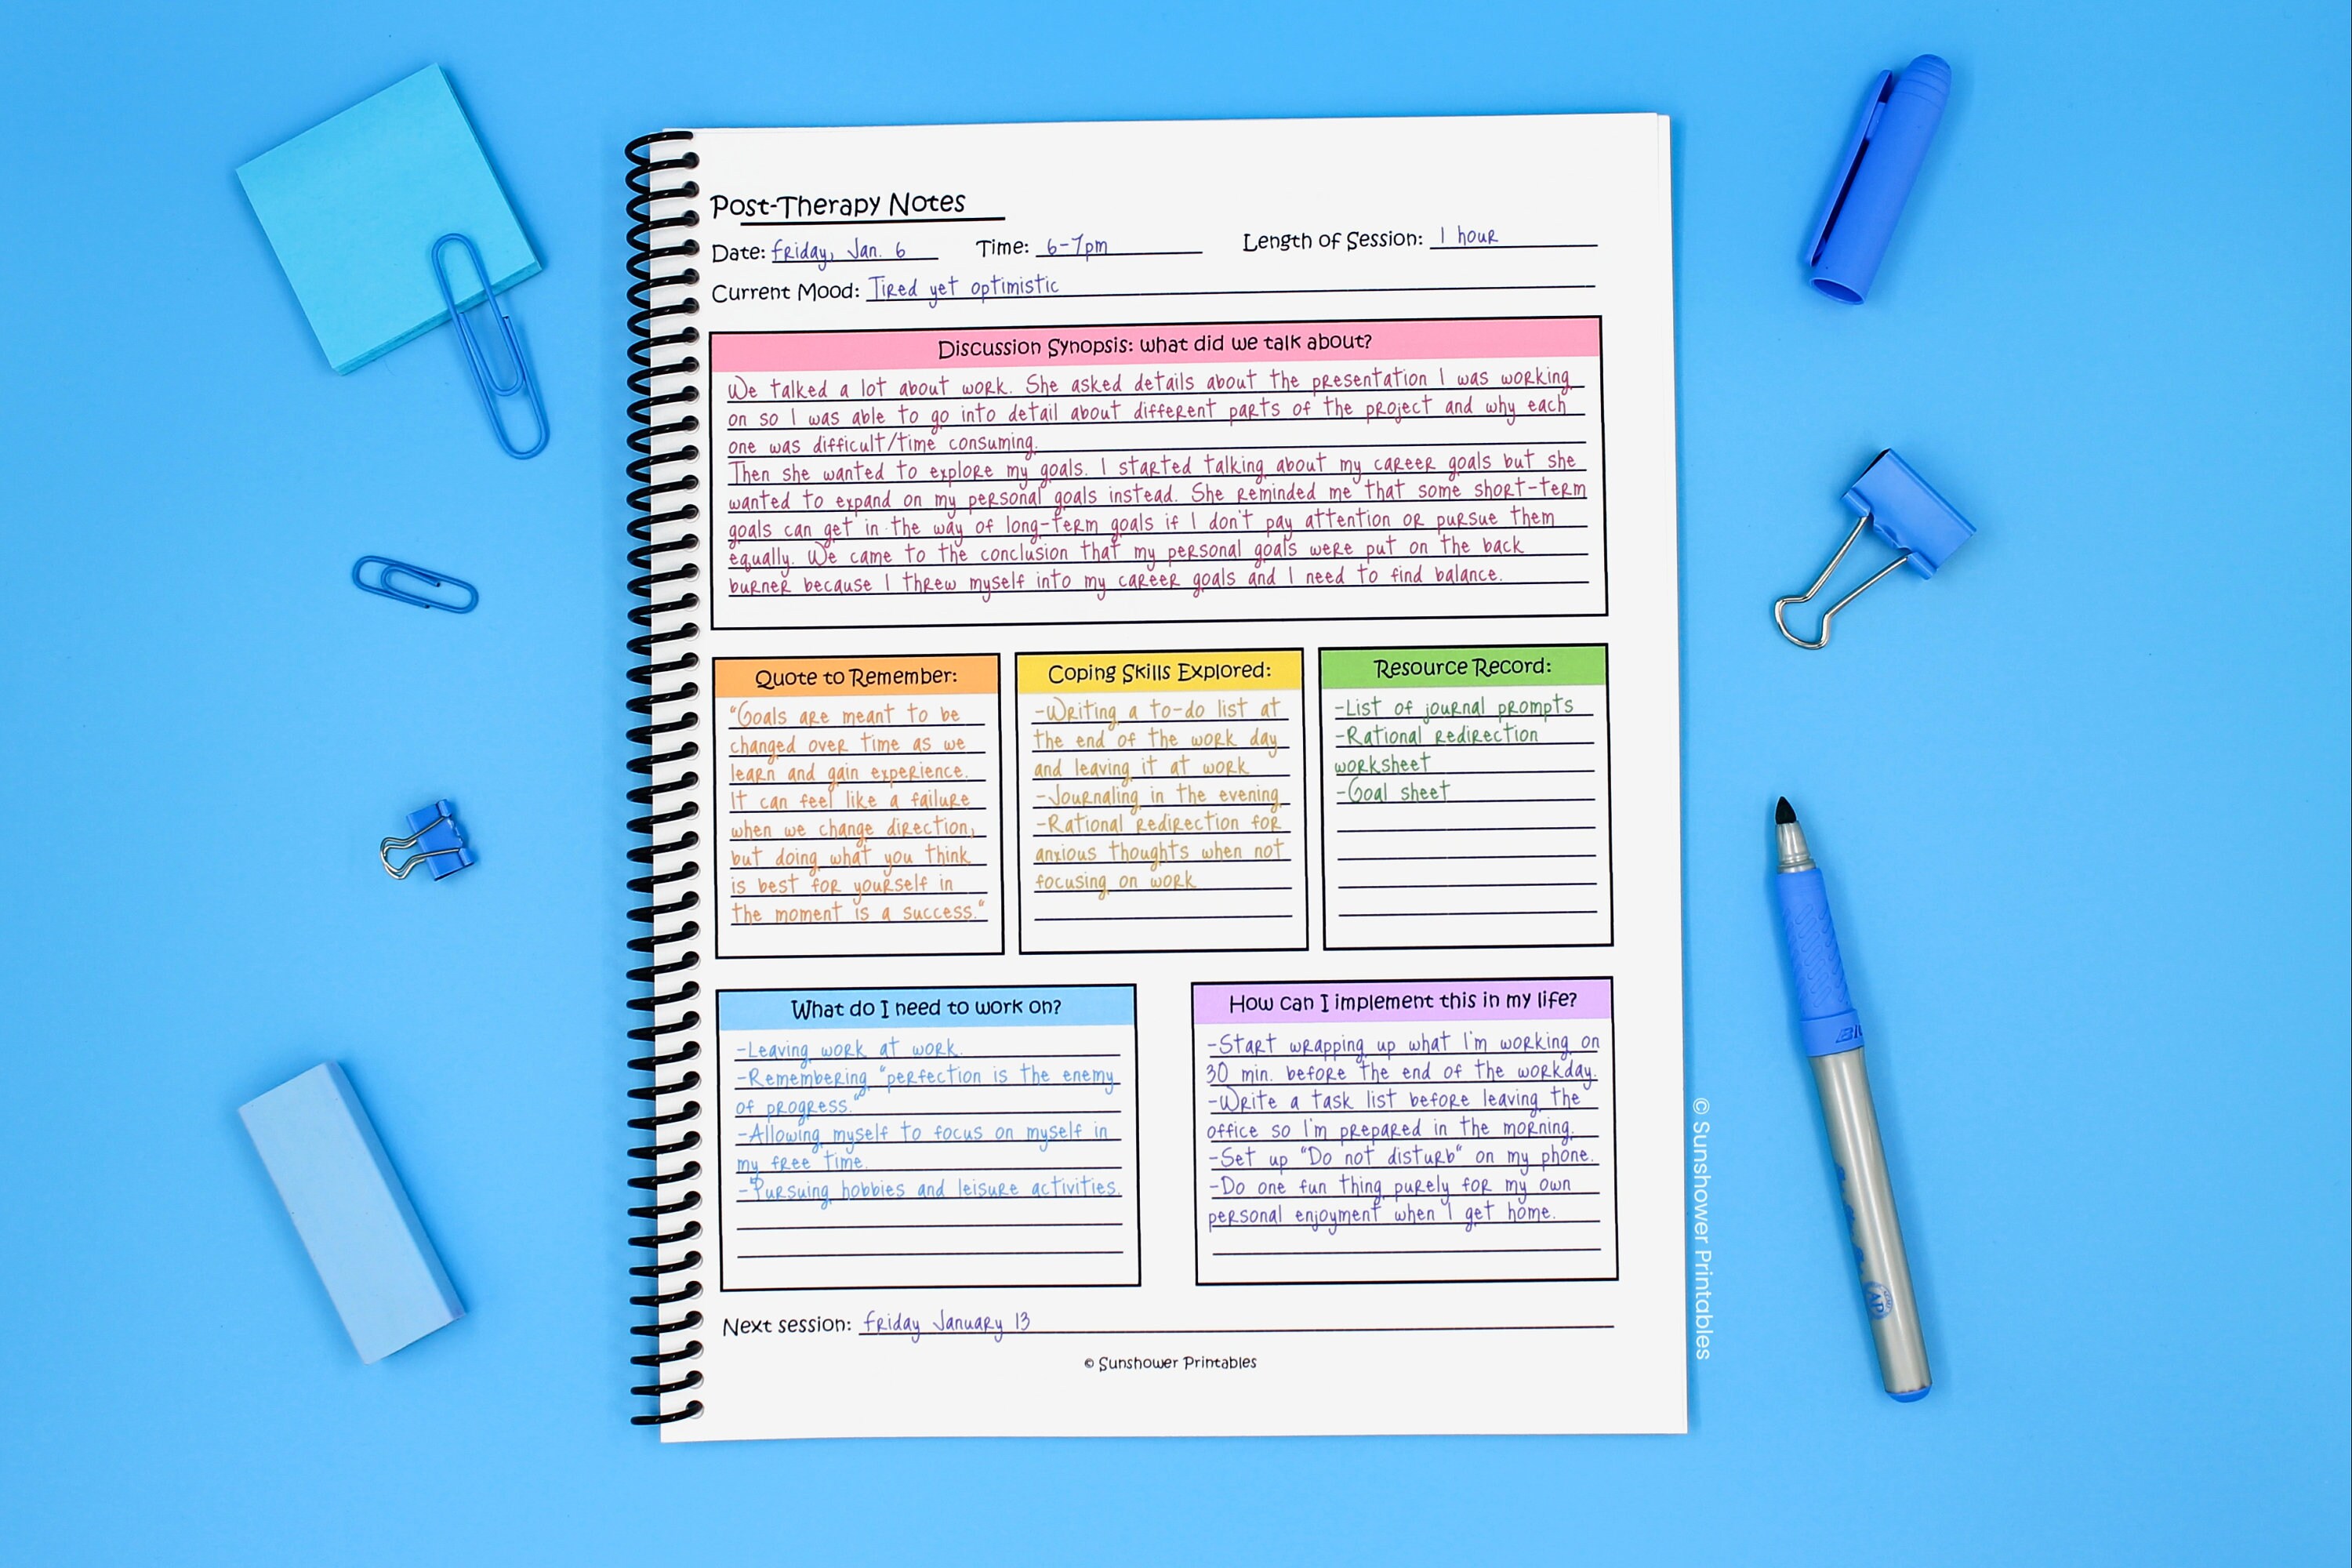 Post-Therapy Notes
Date: Friday, Jan. 6 Time: 6-7pm Length of Session: 1 hour
Current Mood: Tired yet optimistic
Discussion Synopsis: what did we talk about?
We talked a lot about work. She asked details about the presentation I was working
on so I was able to go into detail about different parts of the project and why each
one was difficult/time consuming.
Then she wanted to explore my goals. I started talking about my career goals but she
wanted to expand on my personal goals instead. She reminded me that some short-term
goals can get in the way of long-term goals if I don't pay attention or pursue them
equally. We came to the conclusion that my personal goals were put on the back
burner because I threw myself into my career goals and I need to find balance.
Quote to Remember:
"Goals are meant to be
changed over time as we
learn and gain experience.
It can feel like a failure
when we change direction,
but doing what you think
is best for yourself in
the moment is a success."
Coping Skills Explored:
-Writing a to-do list at
the end of the work day
and leaving it at work
-Journaling in the evening
-Rational redirection for
anxious thoughts when not
focusing on work
Resource Record:
-List of journal prompts
-Rational redirection
worksheet
-Goal sheet
What do I need to work on?
-Leaving work at work.
-Remembering "perfection is the enemy
of progress."
-Allowing myself to focus on myself in
my free time.
-Pursuing hobbies and leisure activities.
How can I implement this in my life?
-Start wrapping up what I'm working on
30 min. before the end of the workday.
-Write a task list before leaving the
office so I'm prepared in the morning.
-Set up "Do not disturb" on my phone.
-Do one fun thing purely for my own
personal enjoyment when I get home.
Next session: Friday January 13
© Sunshower Printables
© Sunshower Printables
AP